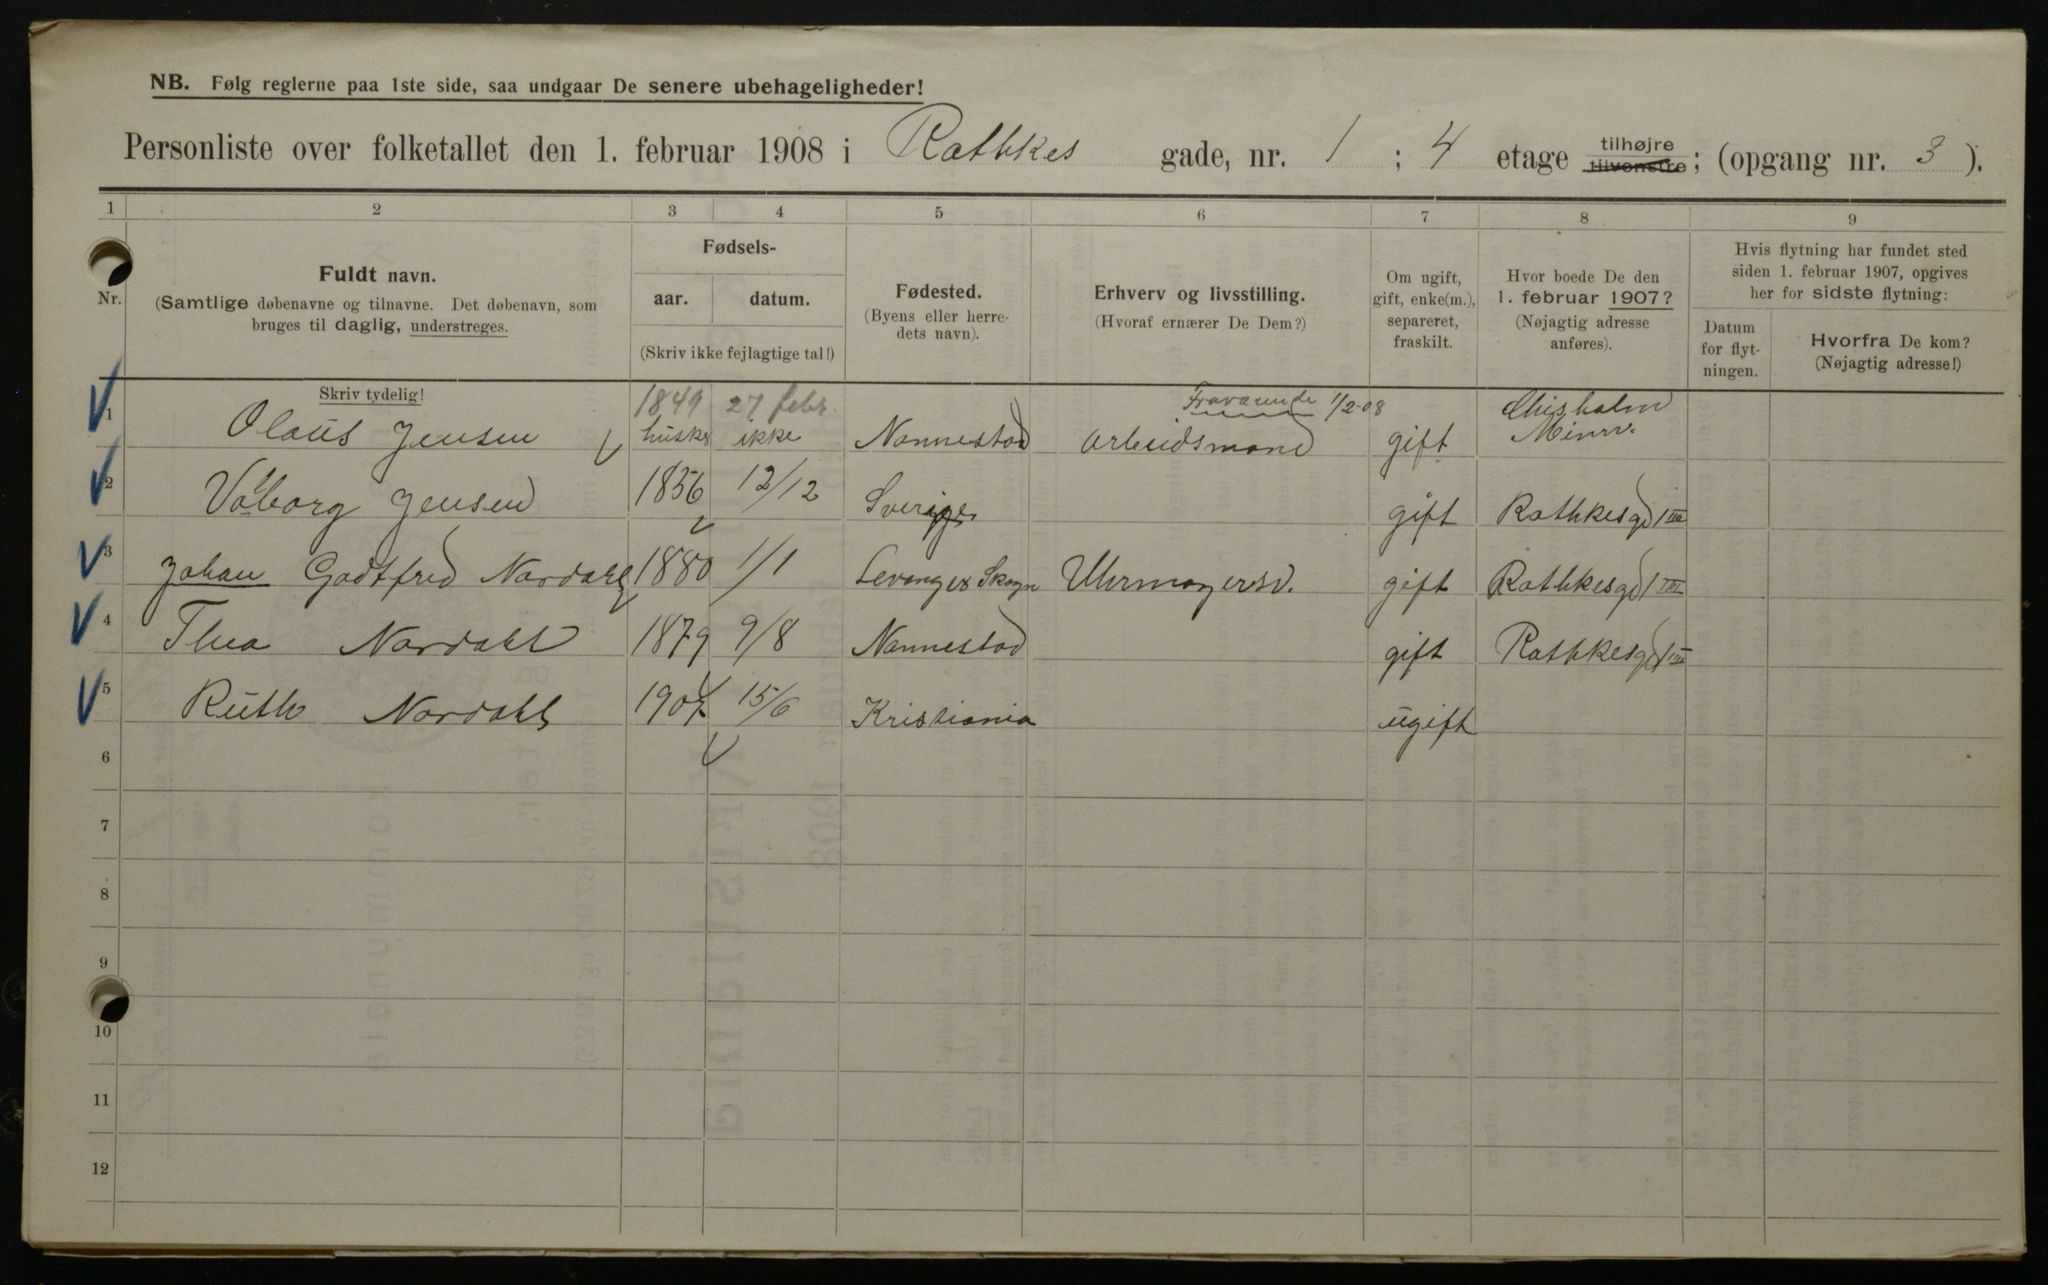 NB. Følg reglerne paa 1ste side, saa undgaar De senere ubehageligheder!
Personliste over folketallet den 1. februar 1908 i Rathkes gade, nr. 1 ; 4 etage tilhøjre tilvenstre; (opgang nr. 3 ).
1 2 3 4 5 6 7 8 9
Nr.
Fuldt navn.
(Samtlige døbenavne og tilnavne. Det døbenavn, som
bruges til daglig, understreges.
Skriv tydelig!
Fødsels-
aar. datum.
(Skriv ikke fejlagtige tal!)
Fødested.
(Byens eller herre-
dets navn).
Erhverv og livsstilling.
(Hvoraf ernærer De Dem?)
Om ugift,
gift, enke(m.),
separeret,
fraskilt.
Hvor boede De den
1. februar 1907?
(Nøjagtig adresse
anføres).
Hvis flytning har fundet sted
siden 1. februar 1907, opgives
her for sidste flytning:
Datum
for flyt-
ningen.
Hvorfra De kom?
(Nøjagtig adresse!)
1849 27 febr. Fraværende 1/2-08
1 Olaus Jensen husker ikke Nannestad Arbeidsmand gift Minn.
2 Valborg Jensen 1856 12/12 Sverige gift Rathkesgd 1 III
3 Johan Godtfred Nordahl 1880 1/1 Levanger Skogn Uhrmagersv. gift Rathkesgd 1 III
4 Thea Nordahl 1879 9/8 Nannestad gift Rathkesgd 1 III
5 Ruth Nordahl 1907 15/6 Kristiania ugift
6
7
8
9
10
11
12